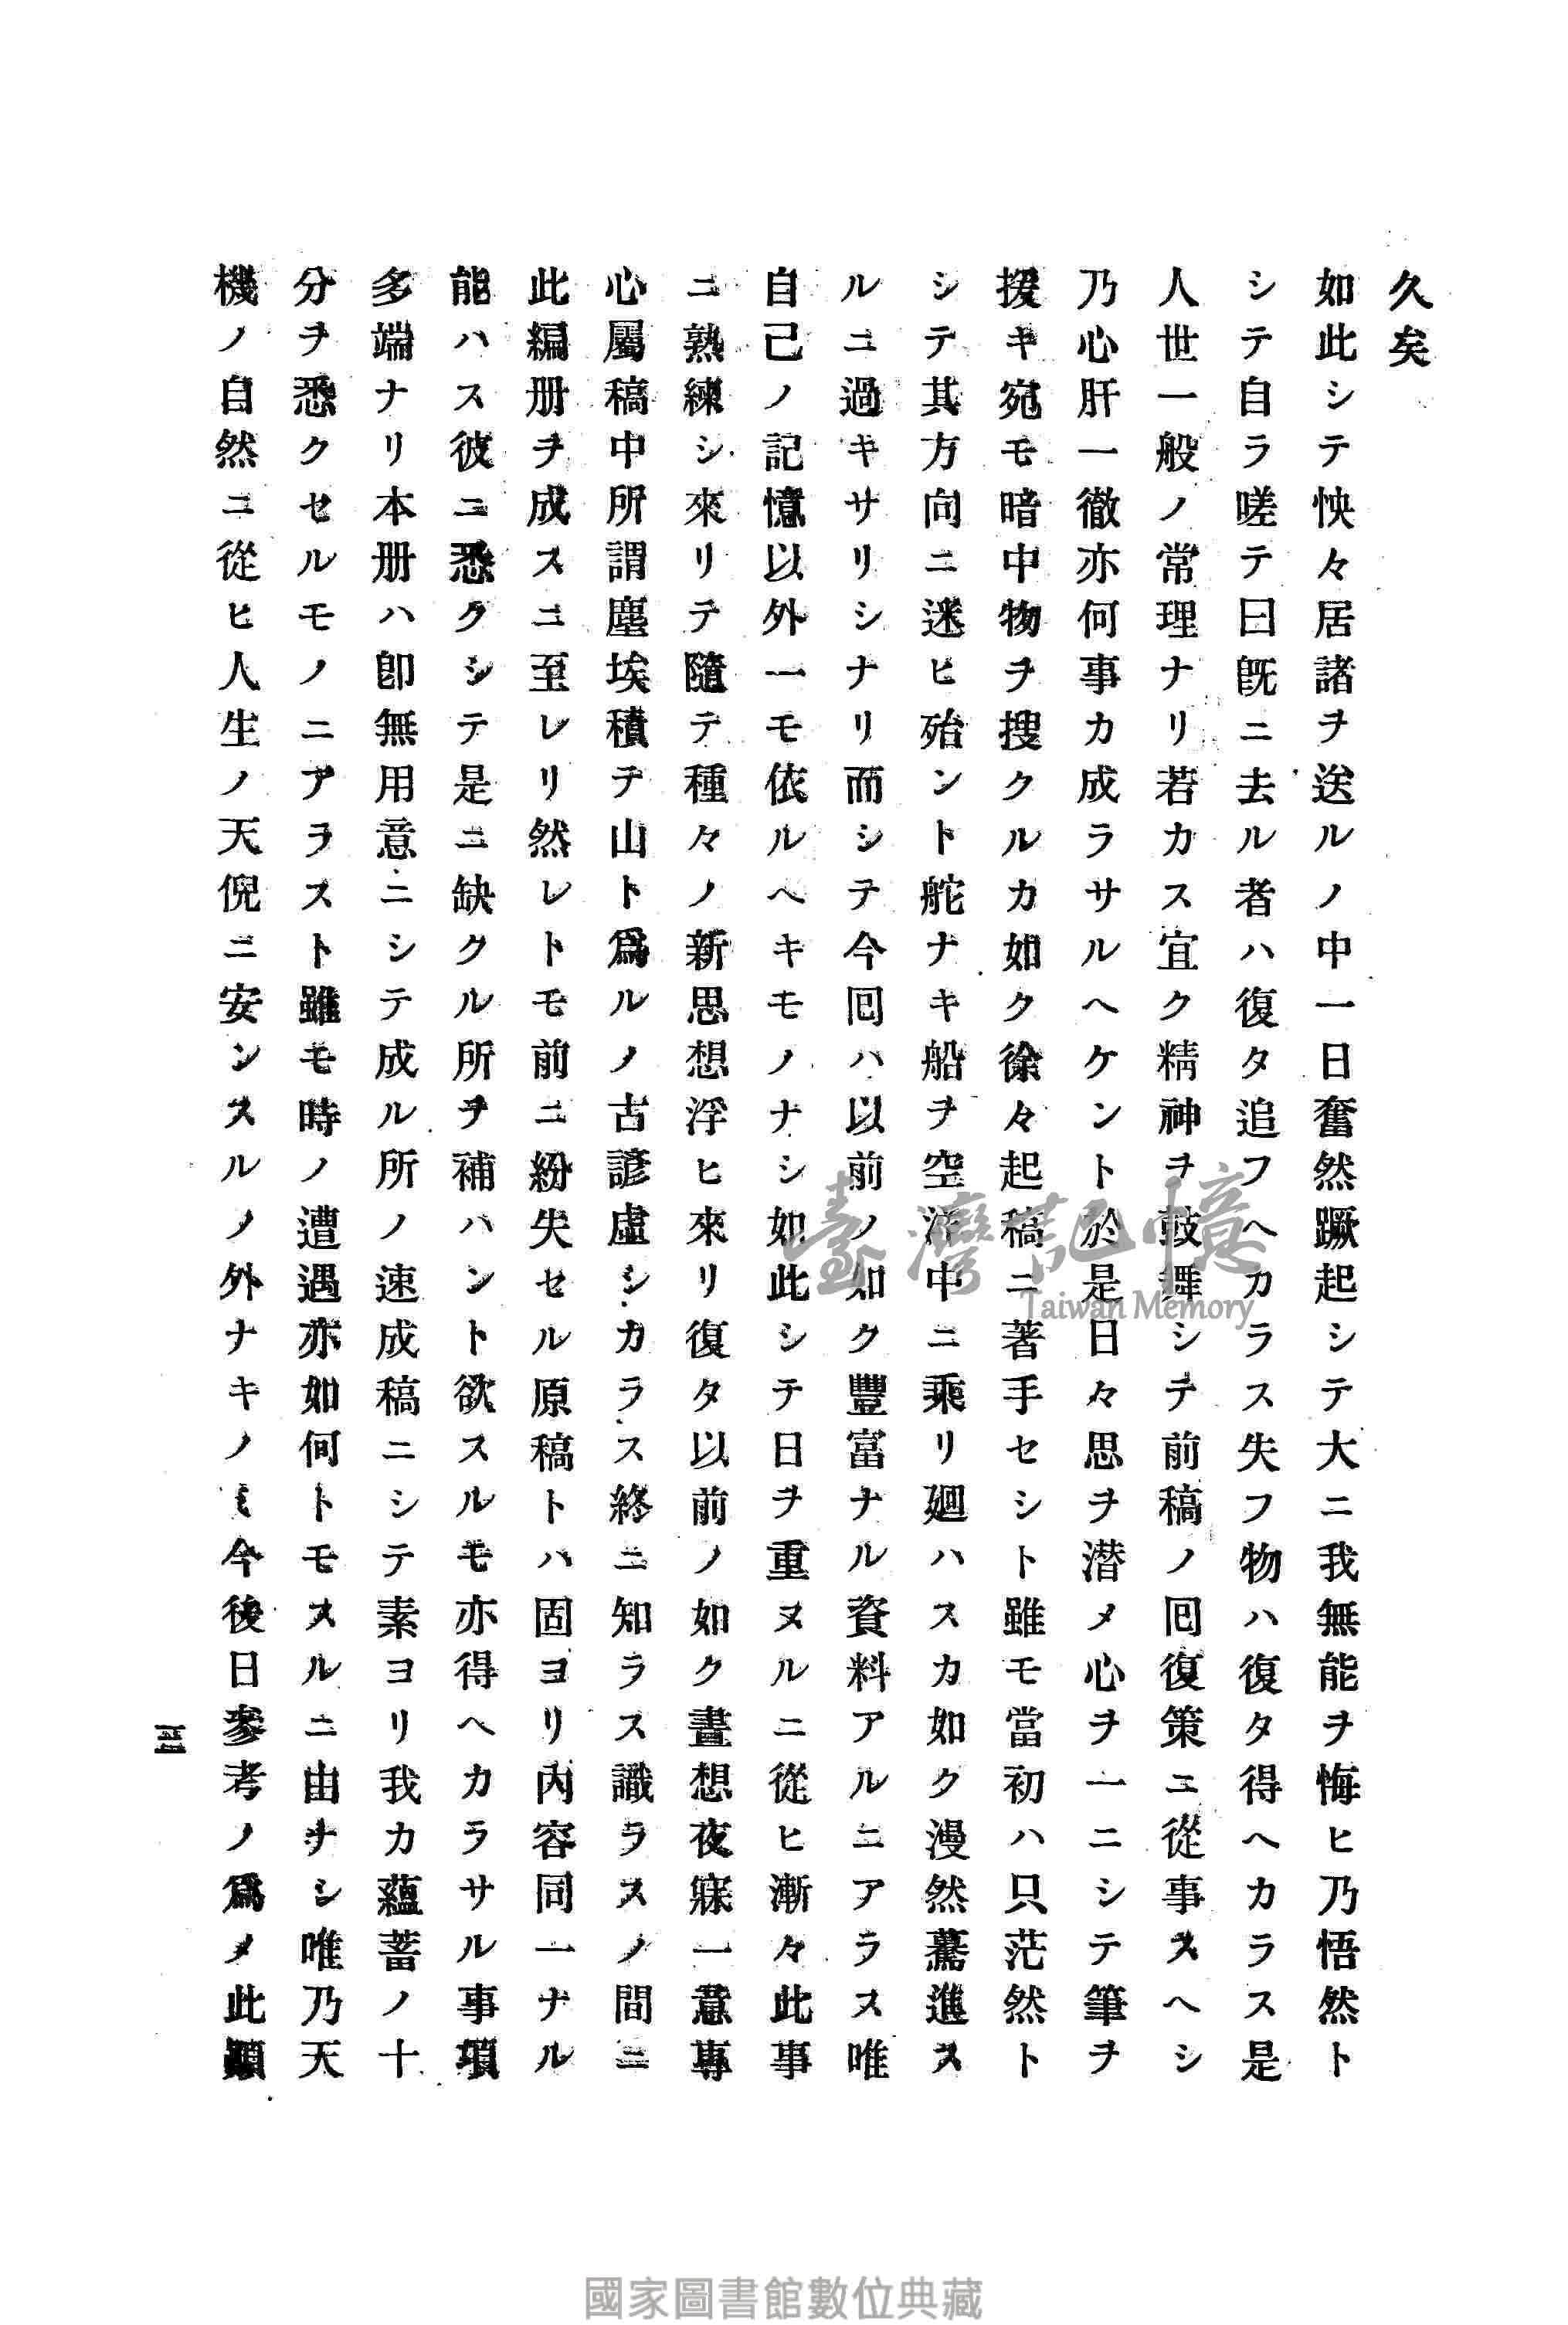 久矣
如此シテ怏々居諸ヲ送ルノ中一日奮然蹶起シテ大ニ我無能ヲ悔ヒ乃悟然ト
シテ自ラ嗟テ曰既ニ去ル者ハ復タ追フヘカラス失フ物ハ復タ得ヘカラス是
人世一般ノ常理ナリ若カス宜ク精神ヲ鼓舞シテ前稿ノ囘復策ニ從事スヘシ
乃心肝一徹亦何事カ成ラサルヘケント於是日々思ヲ潜メ心ヲ一ニシテ筆ヲ
援キ宛モ暗中物ヲ搜クルカ如ク徐々起稿ニ著手セシト雖モ當初ハ只茫然ト
シテ其方向ニ迷ヒ殆ント舵ナキ船ヲ空洋中ニ乘リ廻ハスカ如ク漫然驀進ス
ルニ過キサリシナリ而シテ今囘ハ以前ノ如ク豐富ナル資料アルニアラス唯
自己ノ記憶以外一モ依ルヘキモノナシ如此シテ日ヲ重ヌルニ從ヒ漸々此事
ニ熟練シ來リテ隨テ種々ノ新思想浮ヒ來リ復タ以前ノ如ク晝想夜寐一意專
心屬稿中所謂塵埃積テ山ト爲ルノ古諺虛シカラス終ニ知ラス識ラスノ間ニ
此編册ヲ成スニ至レリ然レトモ前ニ紛失セル原稿トハ固ヨリ內容同一ナル
能ハス彼ニ悉クシテ是ニ缺クル所ヲ補ハント欲スルモ亦得ヘカラサル事項
多端ナリ本册ハ卽無用意ニシテ成ル所ノ速成稿ニシテ素ヨリ我カ蘊蓄ノ十
分ヲ悉クセルモノニアラスト雖モ時ノ遭遇亦如何トモスルニ由ナシ唯乃天
機ノ自然ニ從ヒ人生ノ天倪ニ安ンスルノ外ナキノミ今後日參考ノ爲メ此顚
三
臺灣記憶
Taiwan Memory
國家圖書館數位典藏